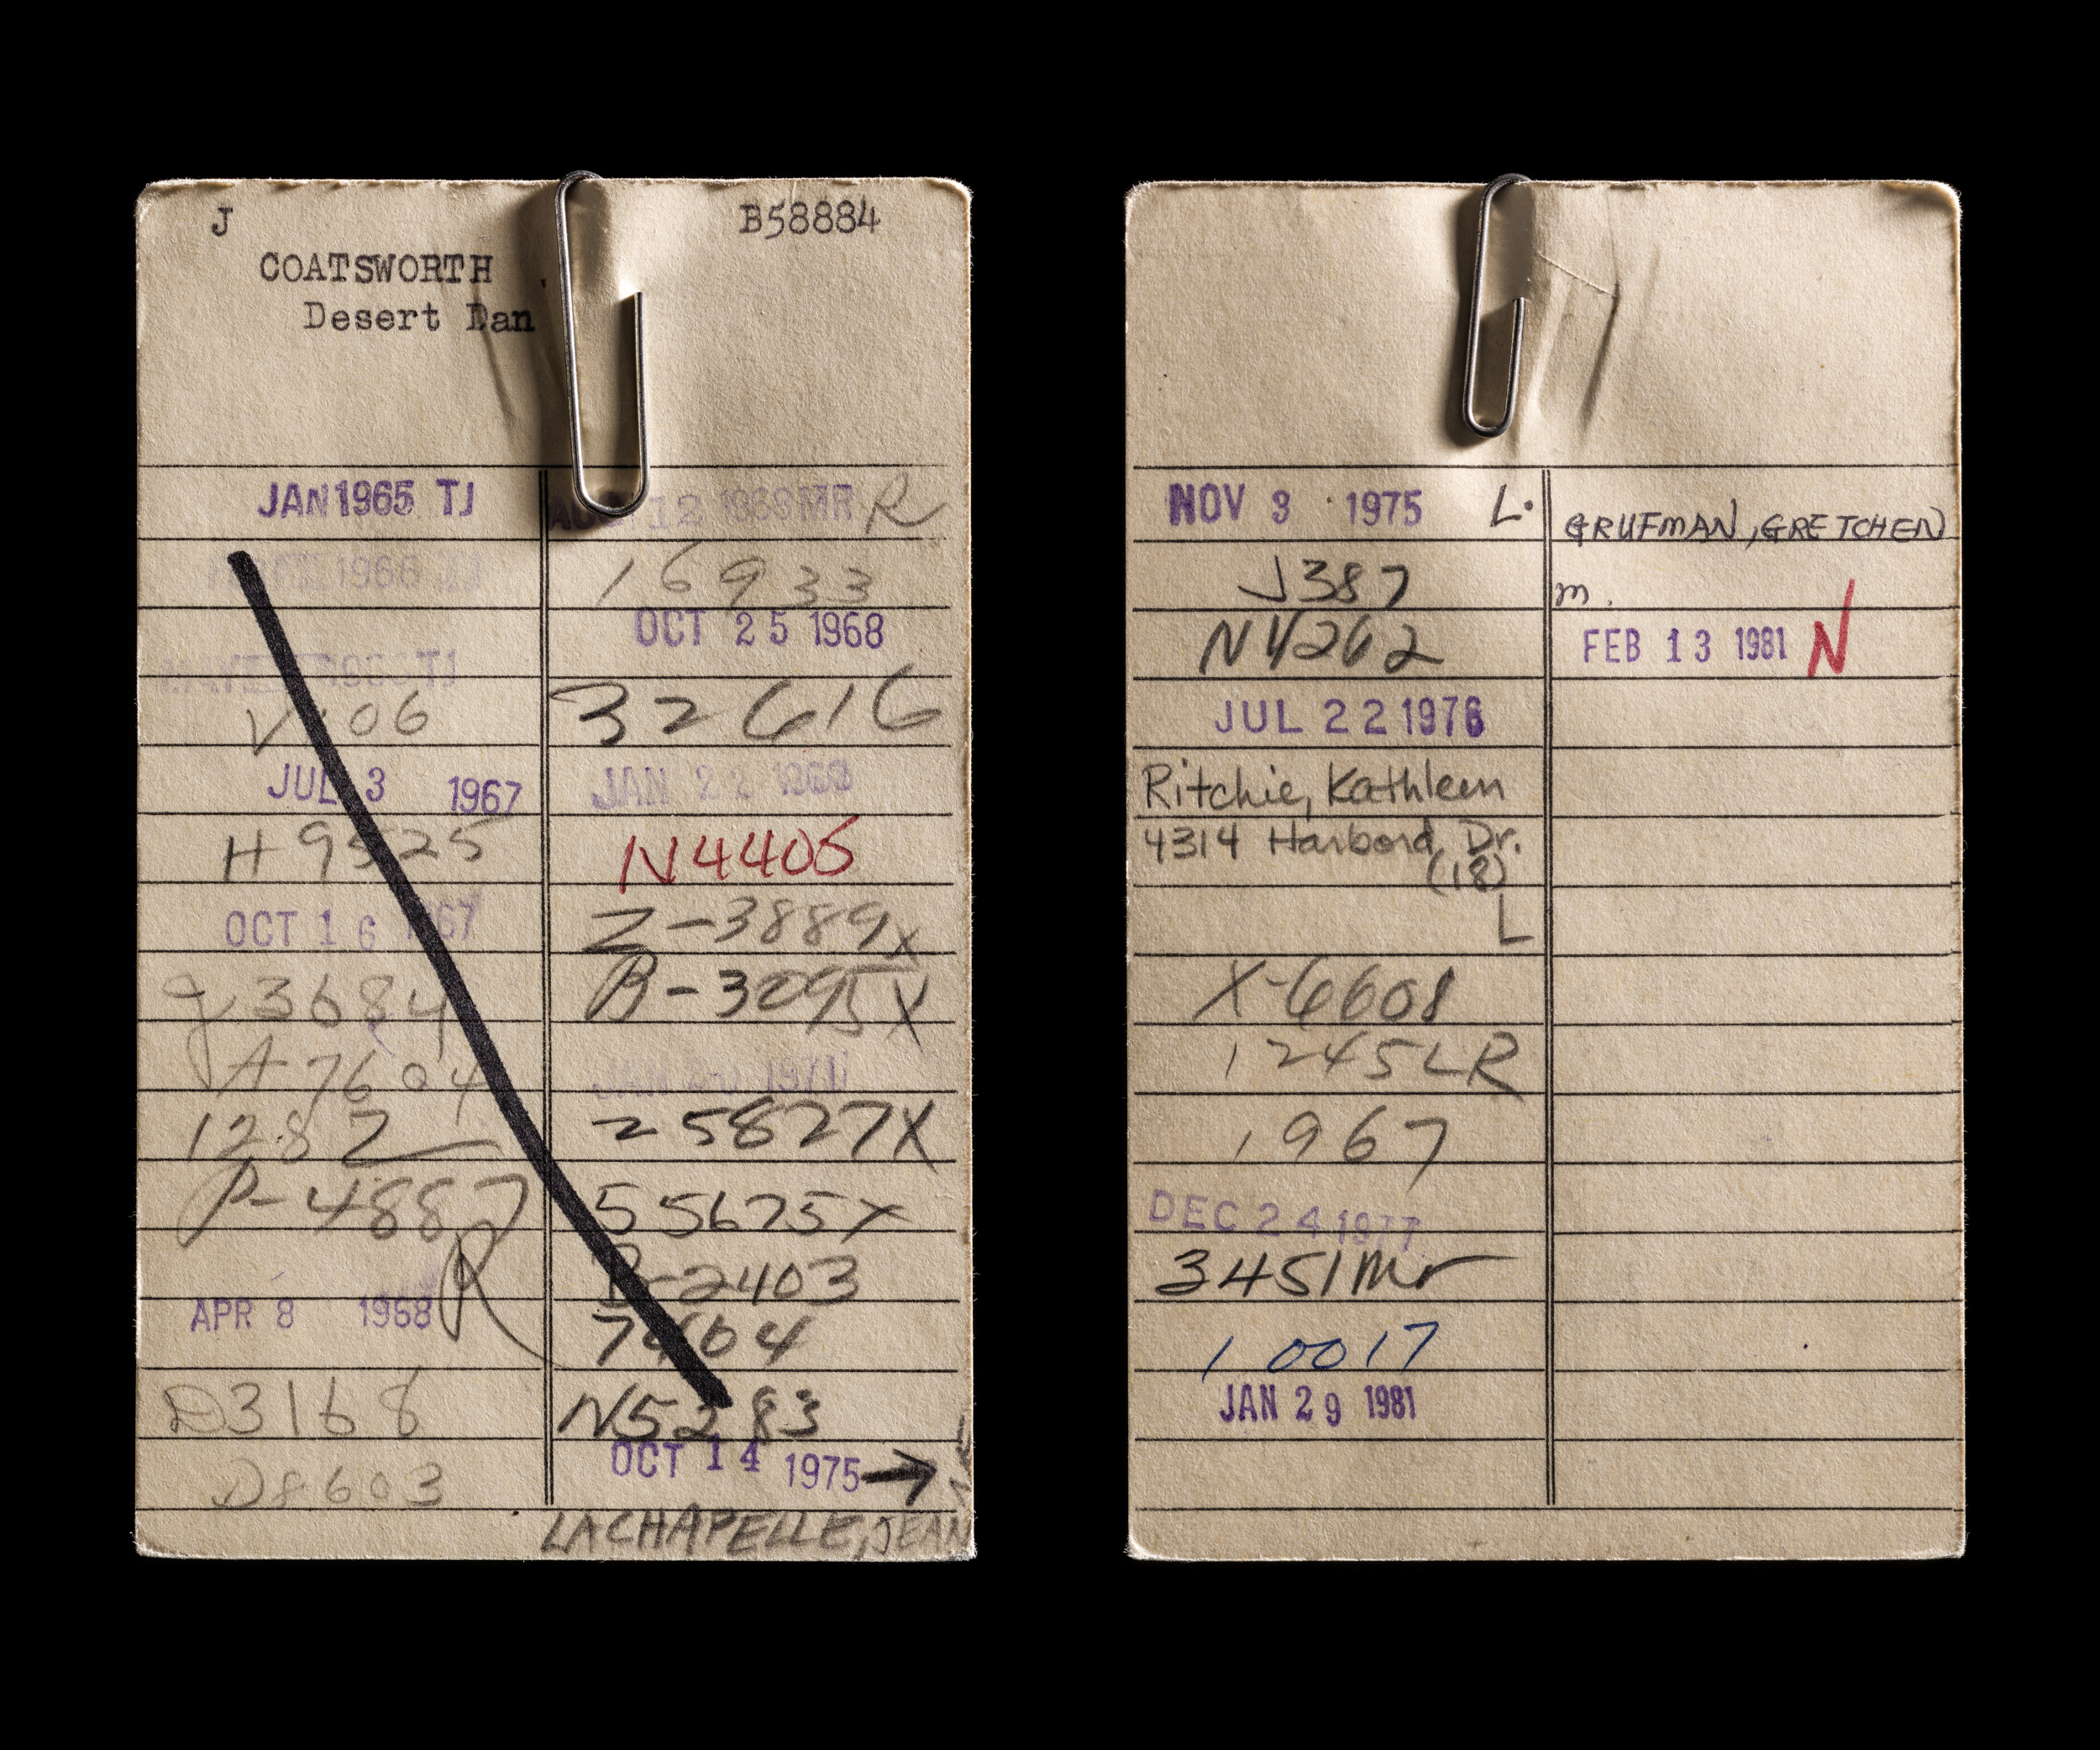 J
B58884
COATSWORTH
Desert Dan
JAN 1965 TJ
1966 TJ
TJ
06
JUL 3 1967
H 9525
OCT 16 1967
g 3684
A 7604
1287
P-4887
R
APR 8 1968
D3168
D8603
12 1968 MR R
16933
OCT 25 1968
32616
JAN 22 1969
N4405
Z-3889x
B-3095X
JAN 1971
25827X
55675x
B-2403
7464
N5283
OCT 14 1975 →
LACHAPELLE, JEAN
NOV 3 1975 L.
J387
N4262
JUL 22 1976
Ritchie, Kathleen
4314 Harbord Dr.
(18)
L
X-6608
1245LR
1967
DEC 24 1977
3451mr
10017
JAN 29 1981
GRUFMAN, GRETCHEN
m.
FEB 13 1981 N